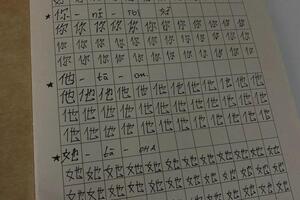 你 - nǐ ты
你你你你你你你你你你你你
你你你你你你你你你你你你
你你你你你你你你你你你你
他 - tā - он.
他他他他他他他他他他他他
他他他他他他他他他他他他
他他他他他他他他他他他他
她 - tā - она
她她她她她她她她她她她她
她她她她她她她她她她她她